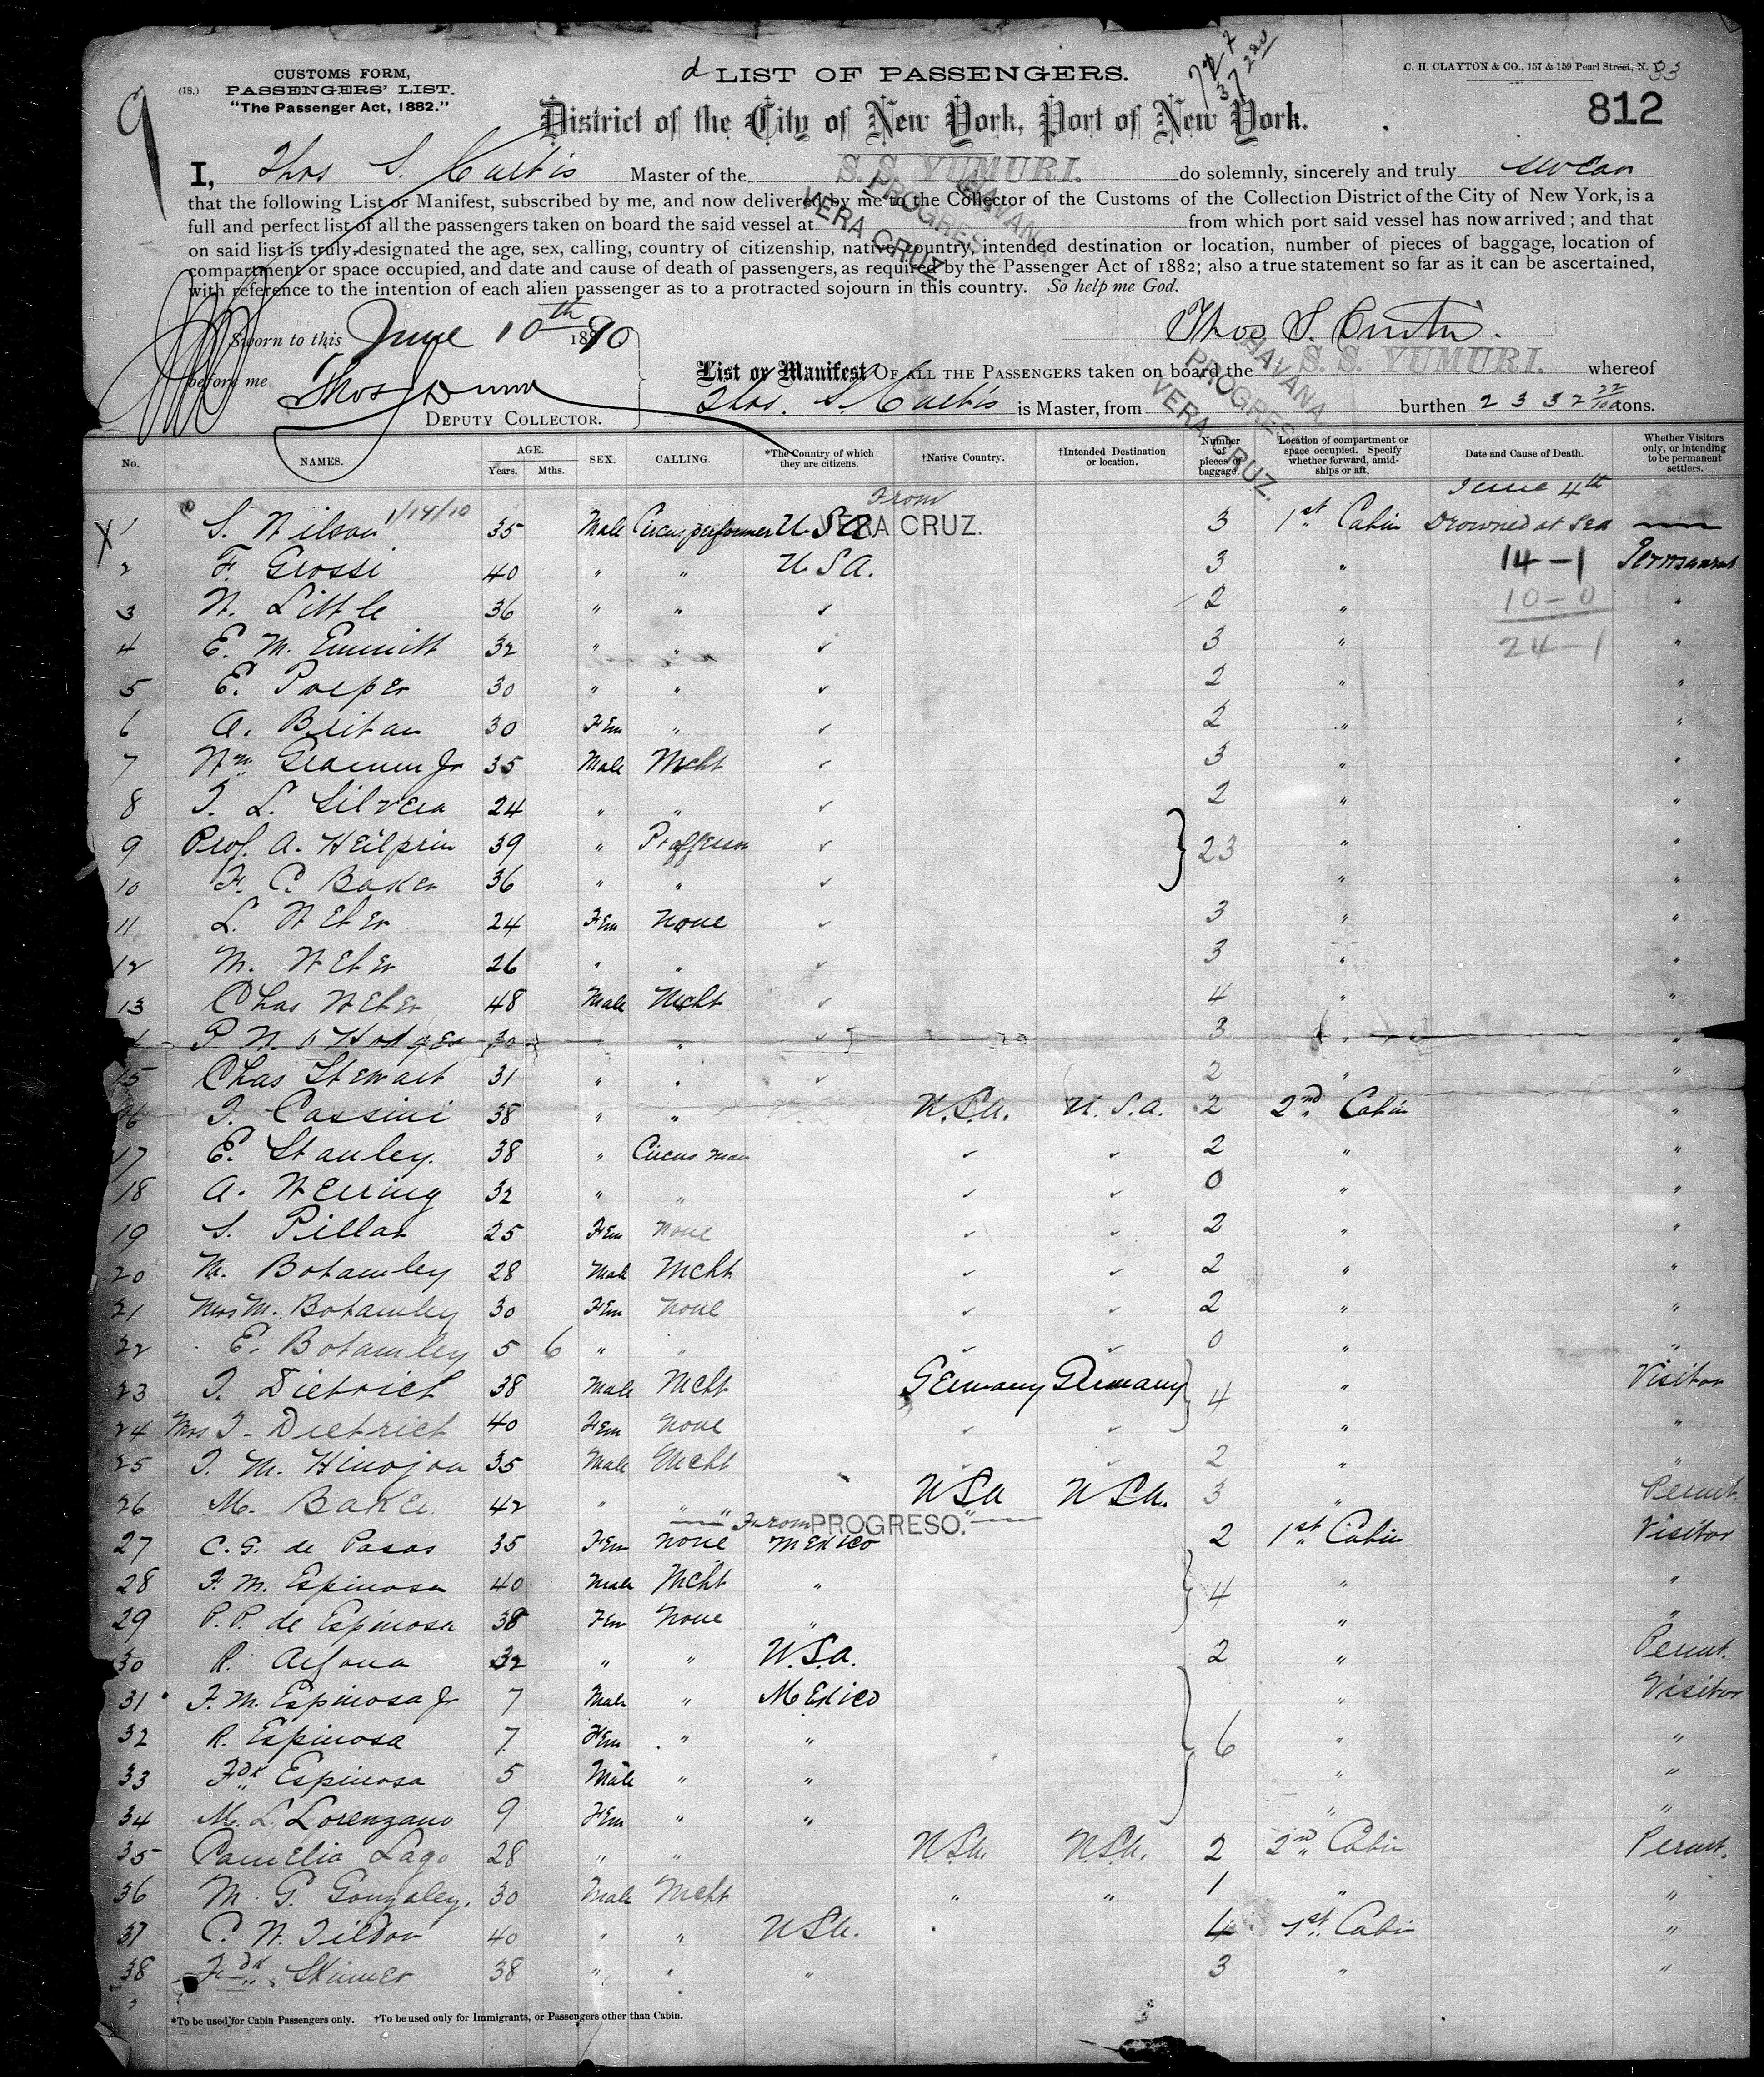 9
(18.)
CUSTOMS FORM,
PASSENGERS' LIST.
"The Passenger Act, 1882."
LIST OF PASSENGERS.
C. H. CLAYTON & CO., 157 & 159 Pearl Street, N.
812
District of the City of New York, Port of New York.
I, Thos S. Curtis Master of the S. S. YUMURI. do solemnly, sincerely and truly swear
that the following List or Manifest, subscribed by me, and now delivered by me to the Collector of the Customs of the Collection District of the City of New York, is a
full and perfect list of all the passengers taken on board the said vessel at VERA CRUZ PROGRESO HAVANA from which port said vessel has now arrived; and that
on said list is truly designated the age, sex, calling, country of citizenship, native country, intended destination or location, number of pieces of baggage, location of
compartment or space occupied, and date and cause of death of passengers, as required by the Passenger Act of 1882; also a true statement so far as it can be ascertained,
with reference to the intention of each alien passenger as to a protracted sojourn in this country. So help me God.
Sworn to this June 10th 1890
Thos S. Curtis.
before me Thos Dunn
DEPUTY COLLECTOR.
List or Manifest OF ALL THE PASSENGERS taken on board the S. S. YUMURI. whereof
Thos. S. Curtis is Master, from VERA CRUZ. PROGRESO HAVANA. burthen 2332 22/100 tons.
No. NAMES. AGE. Years. Mths. SEX. CALLING. *The Country of which they are citizens. †Native Country. †Intended Destination or location. Number of pieces of baggage. Location of compartment or space occupied. Specify whether forward, amidships or aft. Date and Cause of Death. Whether Visitors only, or intending to be permanent settlers.
From VERA CRUZ. June 4th
X 1 S. Wilson 1/14/10 35 Male Circus performer U S A 3 1st Cabin Drowned at Sea
2 F. Grossi 40 " " U S A. 3 " 14-1 Permanent
3 W. Little 36 " " ✓ 2 " 10-0 "
4 E. M. Emmitt 32 " " ✓ 3 " 24-1 "
5 E. Pœper 30 " " ✓ 2 " "
6 A. Britan 30 Fem " ✓ 2 " "
7 Wm Jr 35 Male Mcht ✓ 3 " "
8 L. Silvera 24 " " ✓ 2 " "
9 Prof. A. Heilprin 39 " Proffessor ✓ } 23 " "
10 F. C. Baker 36 " " ✓ " "
11 L. Weber 24 Fem None ✓ 3 " "
12 M. Weber 26 " " ✓ 3 " "
13 Chas Weber 48 Male Mcht ✓ 4 " "
P. W. O Hodges 30 " " ✓ 3 " "
15 Chas Stewart 31 " " ✓ 2 " "
16 J. Cassini 38 " " U.S.A. U. S. A. 2 2nd Cabin "
17 E. Stanley. 38 " Circus man ✓ ✓ 2 " "
18 A. Werring 32 " " ✓ ✓ 0 " "
19 S. Pillar 25 Fem None ✓ ✓ 2 " "
20 M. Botamley 28 Male Mcht ✓ ✓ 2 " "
21 Mrs M. Botamley 30 Fem None ✓ ✓ 2 " "
22 E. Botamley 5 6 " " ✓ ✓ 0 " "
23 J. Dietrich 38 Male Mcht Germany Germany } 4 " Visitor
24 Mrs J. Dietrich 40 Fem None ✓ ✓ " "
25 J. M. Hinojon 35 Male Mcht ✓ ✓ 2 " "
26 M. Baker. 42 " " U S A U S A. 3 " Permt.
" From PROGRESO. "
27 C. G. de Pasos 35 Fem None Mexico 2 1st Cabin Visitor
28 F. M. Espinosa 40 Male Mcht " } 4 " "
29 P. P. de Espinosa 38 Fem None " " "
30 R. 32 " " U.S.A. 2 " Permt.
31 F. M. Espinosa Jr 7 Male " Mexico } 6 " Visitor
32 R. Espinosa 7 Fem " " " "
33 Fdk Espinosa 5 Male " " " "
34 M. L. Lorenzano 9 Fem " " " "
35 Pamelia Lago 28 " " U.S.A. U.S.A. 2 2nd Cabin Permt.
36 M. G. Gonzaley. 30 Male Mcht " " 1 " "
37 C. W. Tildon 40 " " U S A. 4 1st Cabin "
38 Fdk Skinner 38 " " " 3 " "
*To be used for Cabin Passengers only. †To be used only for Immigrants, or Passengers other than Cabin.